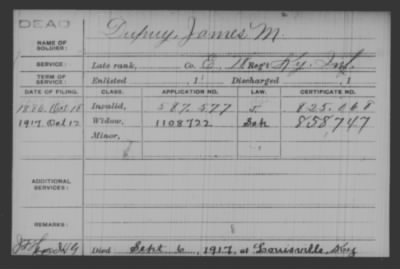 DEAD
NAME OF SOLDIER: Dupuy, James M.
SERVICE: Late rank, Co. E, Reg't Ky. Inf.
TERM OF SERVICE: Enlisted , 1 Discharged , 1
DATE OF FILING. CLASS. APPLICATION NO. LAW. CERTIFICATE NO.
1886 Oct 18 Invalid, 587.577 825.068
1917 Oct 12 Widow, 1108722 858747
Minor,
ADDITIONAL SERVICES:
REMARKS:
Died Sept 6, 1917, at Louisville, Ky